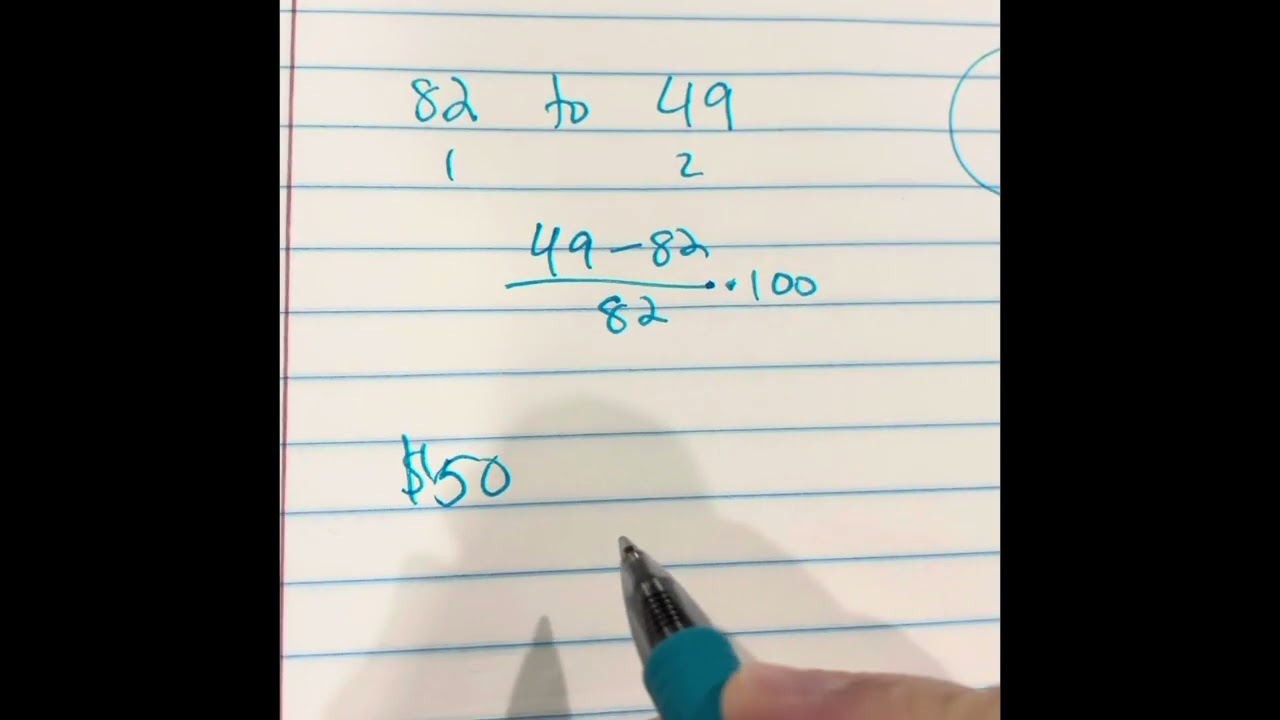 82 to 49
1 2
49-82
82 ··100
$50